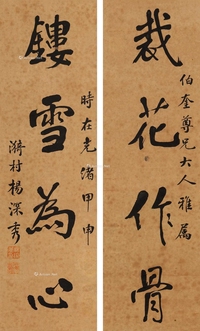 裁花作骨
伯奎尊兄大人雅属
鏤雪為心
時在光緒甲申
漪村楊深秀